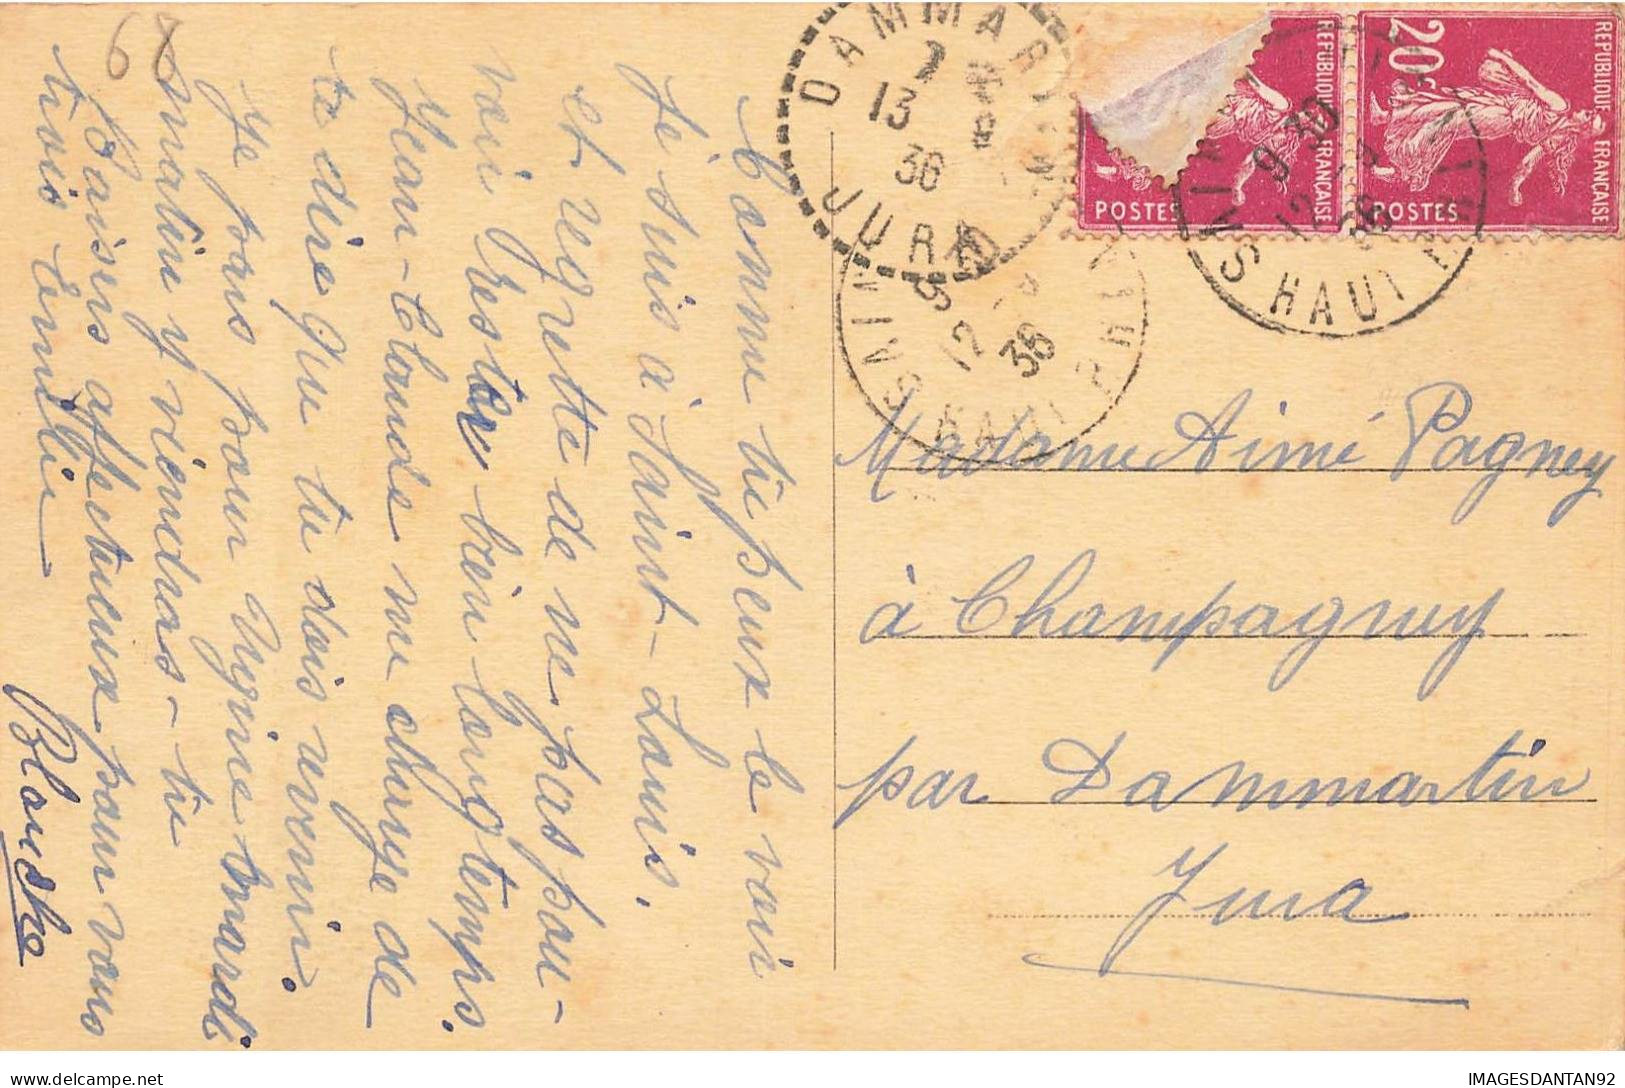 68
Comme tu peux le voir
je suis à Saint-Louis.
et regrette de ne pas pou-
voir rester bien longtemps.
Jean-Claude me charge de
te dire que tu dois venir.
Je pars pour Ugine mardi
matin y viendras-tu
Baisers affectueux pour vous
trois
Blanche
DAMMARTIN
13
36
JURA
12
36
SAINT
HAUT RHIN
9 30
12
36
SAINT
HAUT RHIN
POSTES
REPUBLIQUE FRANÇAISE
20c
POSTES
REPUBLIQUE FRANÇAISE
Madame Aimé Pagney
à Champagney
par Dammartin
Jura
IMAGESDANTAN92